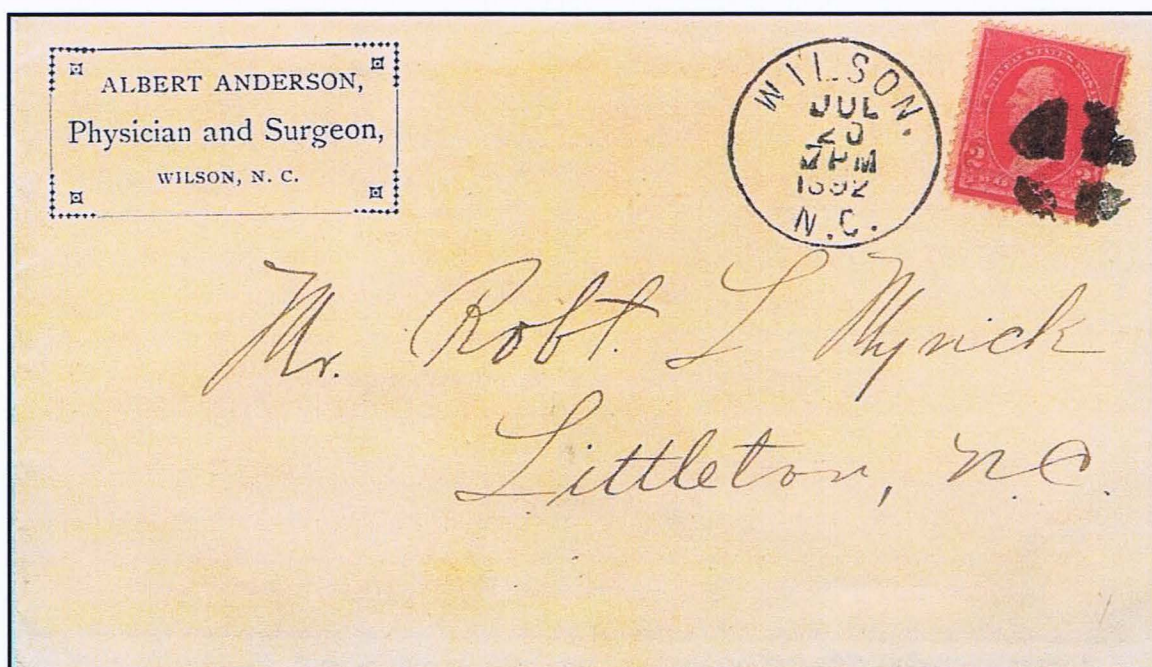 ALBERT ANDERSON,
Physician and Surgeon,
WILSON, N. C.
WILSON.
JUL
20
PM
1892
N.C.
UNITED STATES POSTAGE
2 2
Mr. Robt. L Myrick
Littleton, N.C.